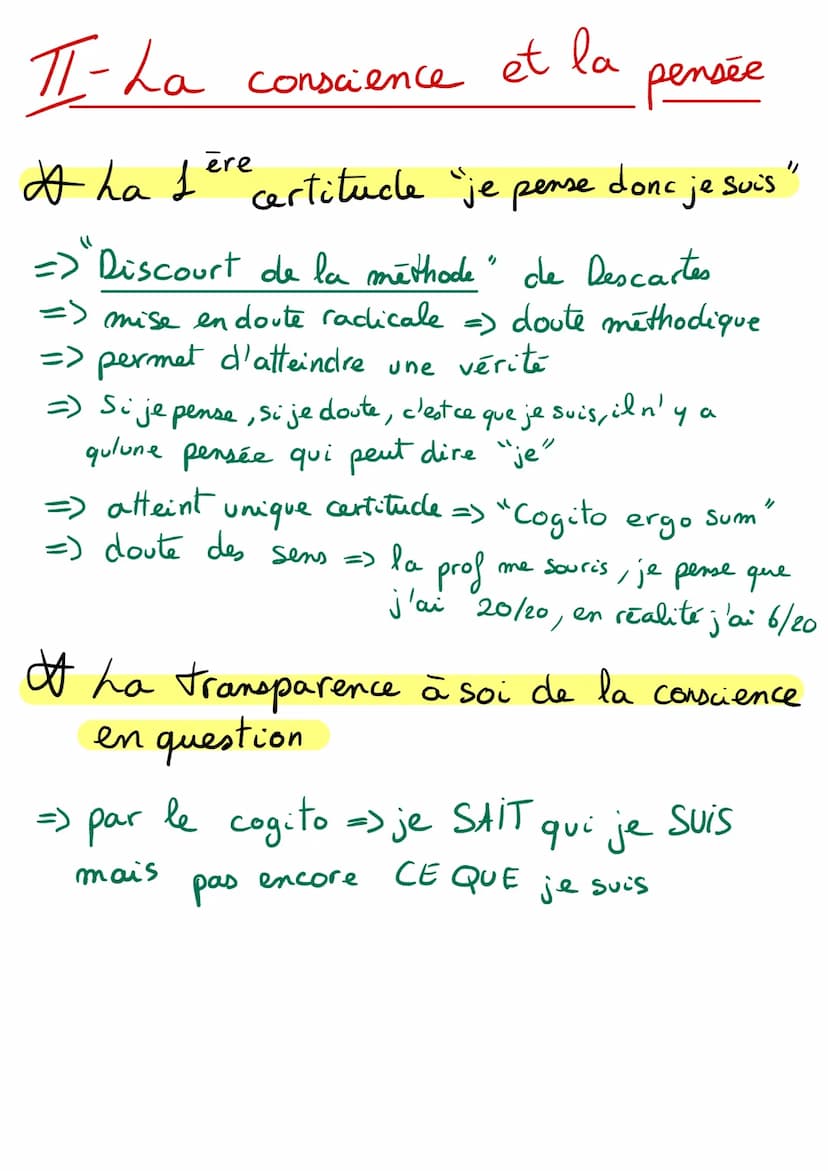 II - La conscience et la pensée
La 1ère certitude "je pense donc je suis"
=> "Discourt de la méthode" de Descartes
=> mise en doute radicale => doute méthodique
=> permet d'atteindre une vérité
=> Si je pense, si je doute, c'est ce que je suis, il n'y a
qu'une pensée qui peut dire "je"
=> atteint unique certitude => "Cogito ergo sum"
=> doute des sens => la prof me souris, je pense que
j'ai 20/20, en réalité j'ai 6/20
La transparence à soi de la conscience
en question
=> par le cogito => je SAIT qui je SUIS
mais pas encore CE QUE je suis